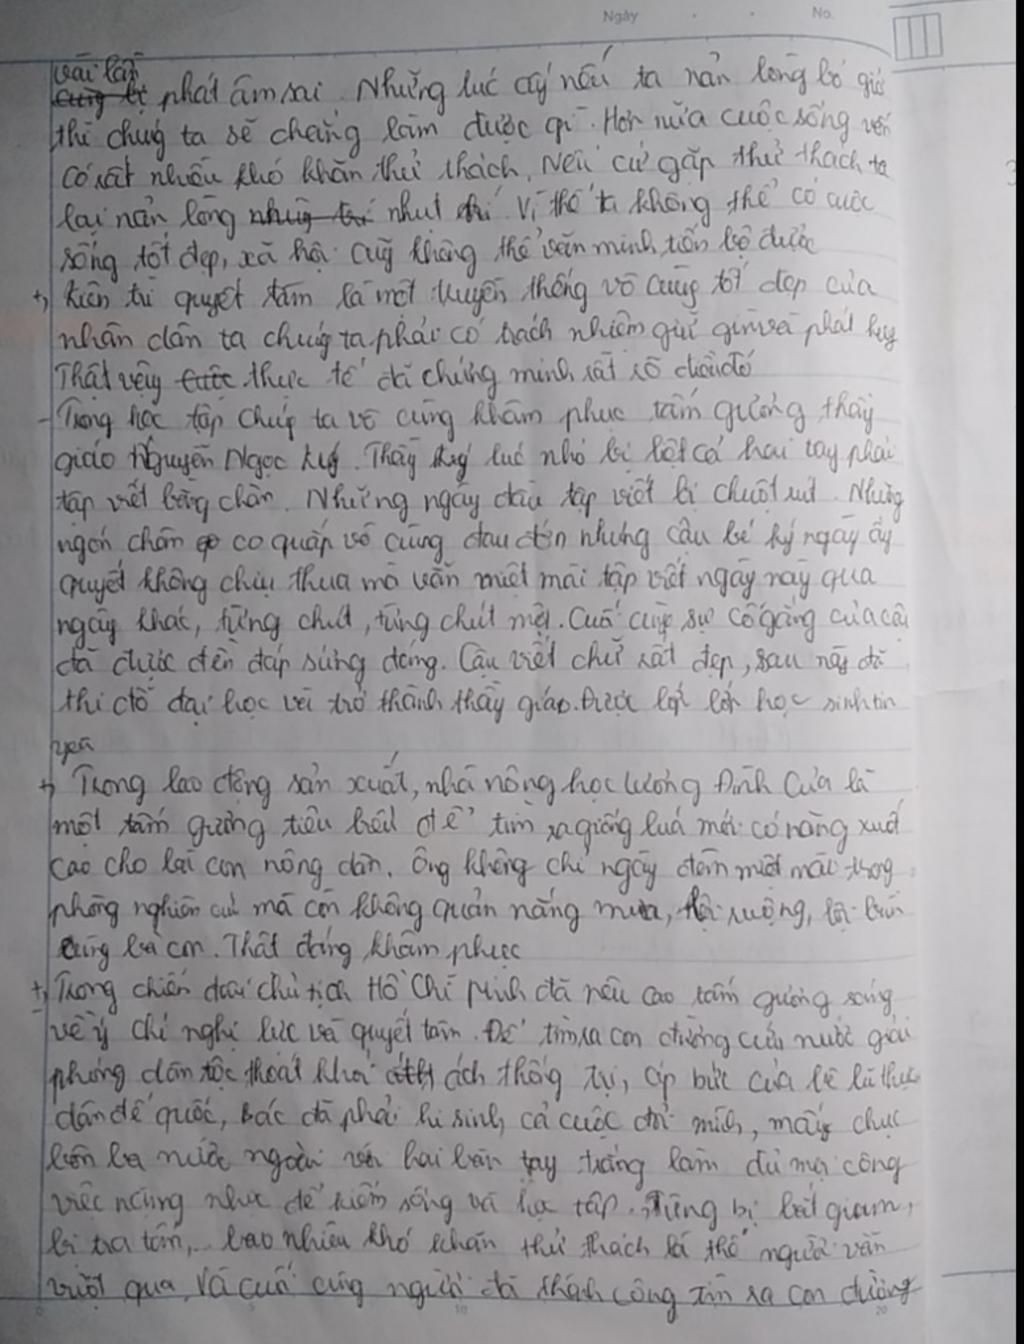 Ngày No.
vài lần
phát âm sai. Những lúc ấy nếu ta nản lòng bỏ giở
thì chúng ta sẽ chẳng làm được gì. Hơn nữa cuộc sống vốn
có rất nhiều khó khăn thử thách, nếu cứ gặp thử thách ta
lại nản lòng nhụt chí Vì thế ta không thể có cuộc
sống tốt đẹp, xã hội cũg không thể văn minh, tiến bộ được
+, Kiên trì quyết tâm là một truyền thống vô cùng tốt đẹp của
nhân dân ta chúng ta phải có trách nhiệm giữ gìn và phát huy
Thật vậy thực tế đã chứng minh rất rõ điều đó
- Trong học tập chúg ta vô cùng khâm phục tấm gương thầy
giáo Nguyễn Ngọc Ký. Thầy Ký lúc nhỏ bị liệt cả hai tay phải
tập viết bằng chân. Những ngày đầu tập viết bị chuột rút. Những
ngón chân co quắp vô cùng đau đớn nhưng cậu bé ký ngày ấy
quyết không chịu thua mà vẫn miệt mài tập viết ngày này qua
ngày khác, từng chút, từng chút một. Cuối cùg sự cố gắng của cậu
đã được đền đáp xứng đáng. Cậu viết chữ rất đẹp, sau này đã
thi đỗ đại học và trở thành thầy giáo. Được lớp lớp học sinh tin
yêu
+, Trong lao động sản xuất, nhà nông học lương Đình Của là
một tấm gương tiêu biểu để tìm ra giống luá mới có năng xuất
cao cho bà con nông dân. Ông không chỉ ngày đêm miệt mài trong
phòng nghiên cứu mà còn không quản nắng mưa, lội ruộng, lội bùn
cùng bà con. Thật đáng khâm phục
+, Trong chiến đấu chủ tịch Hồ Chí Minh đã nêu cao tấm gương sáng
về ý chí nghị lực và quyết tâm. Để tìm ra con đường cứu nước giải
phóng dân tộc thoát khỏi ách thống trị, áp bức của bè lũ thực
dân đế quốc, Bác đã phải hi sinh cả cuộc đời mình, mấy chục
bôn ba nước ngoài với hai bàn tay trắng làm đủ mọi công
việc nặng nhọc để kiếm sống và học tập. Từng bị bắt giam,
bị tra tấn,.. bao nhiêu khó khăn thử thách là thế người vẫn
vượt qua. Và cuối cùng người đã thành công tìm ra con đường